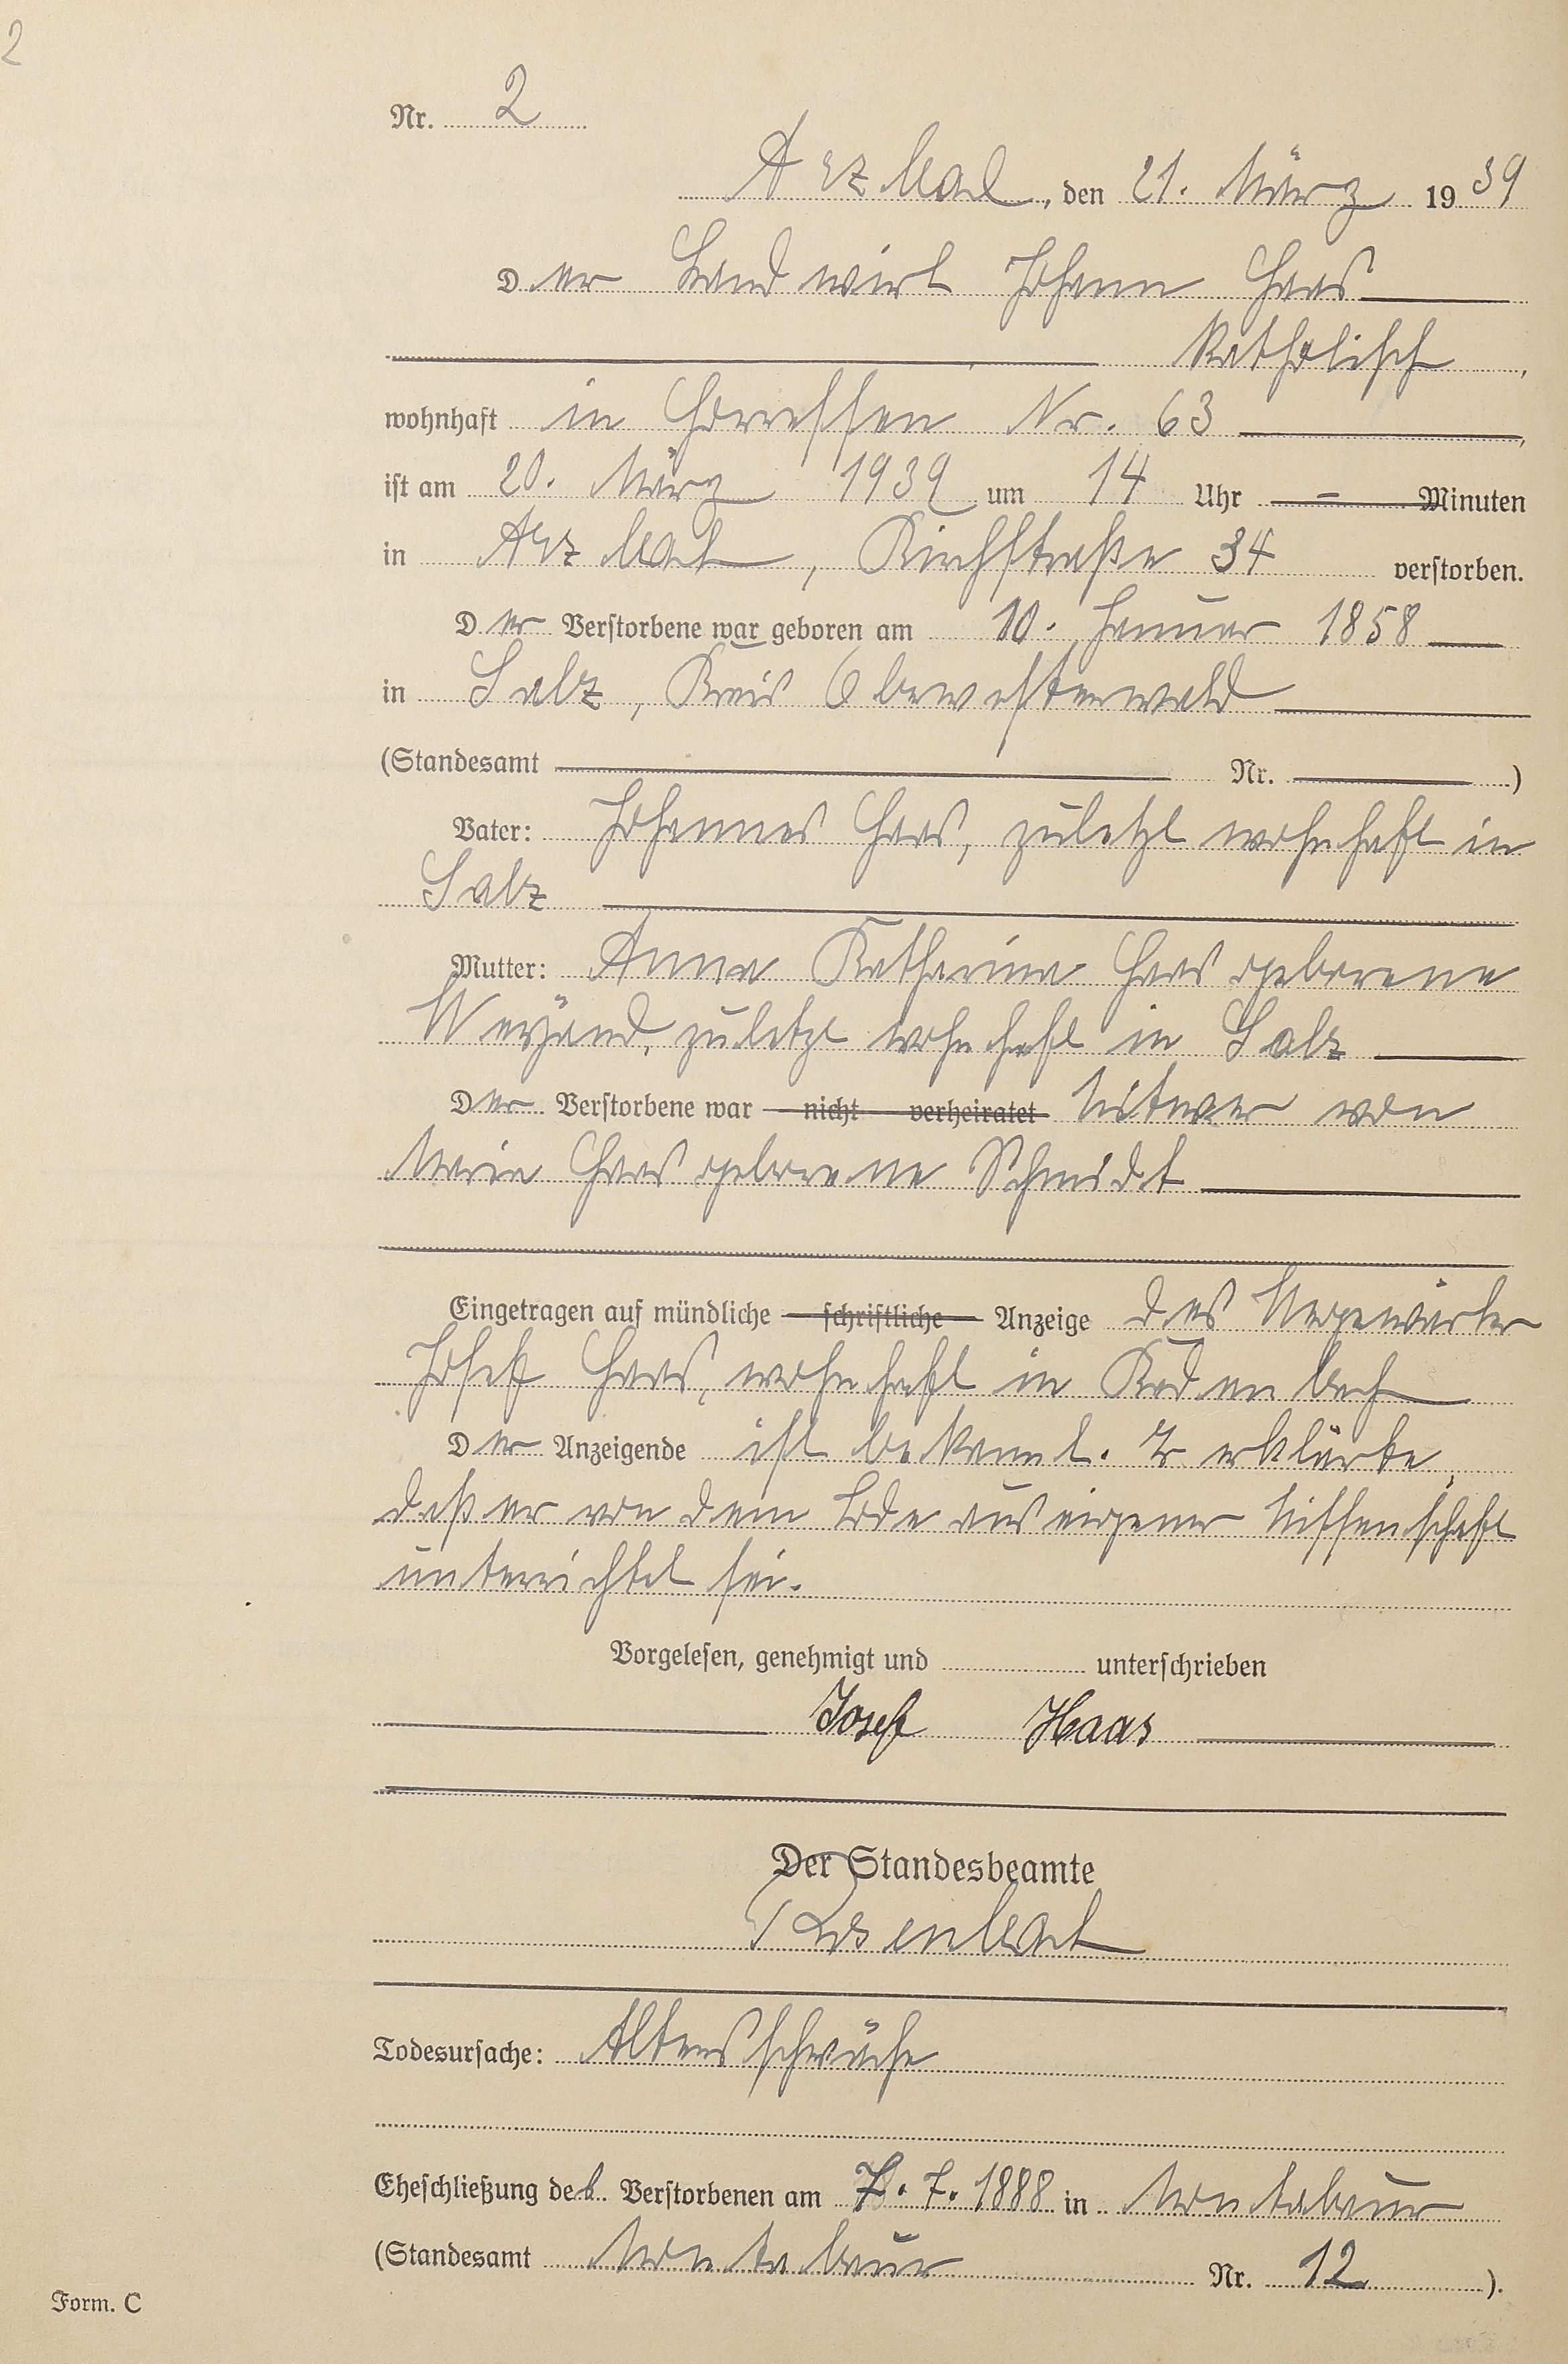 2
Nr. 2
Arzbach, den 21. März 1939
Der Landwirt Johann Haas
katholisch,
wohnhaft in Horressen Nr. 63,
ist am 20. März 1939 um 14 Uhr - Minuten
in Arzbach, Kirchstraße 34 verstorben.
Der Verstorbene war geboren am 10. Januar 1858
in Salz, Kreis Oberwesterwald
(Standesamt Nr. )
Vater: Johannes Haas, zuletzt wohnhaft in
Salz
Mutter: Anna Katharina Haas geborene
Weyand, zuletzt wohnhaft in Salz
Der Verstorbene war nicht verheiratet Witwer von
Maria Haas geborene Schmidt
Eingetragen auf mündliche schriftliche Anzeige des Wegewärter
Josef Haas, wohnhaft in Kadenbach
Der Anzeigende ist bekannt. Er erklärte,
daß er von dem Tode aus eigener Wissenschaft
unterrichtet sei.
Vorgelesen, genehmigt und unterschrieben
Josef Haas
Der Standesbeamte
Todesursache: Altersschwäche
Eheschließung des Verstorbenen am 7. 7. 1888 in Montabaur
(Standesamt Montabaur Nr. 12 ).
Form. C